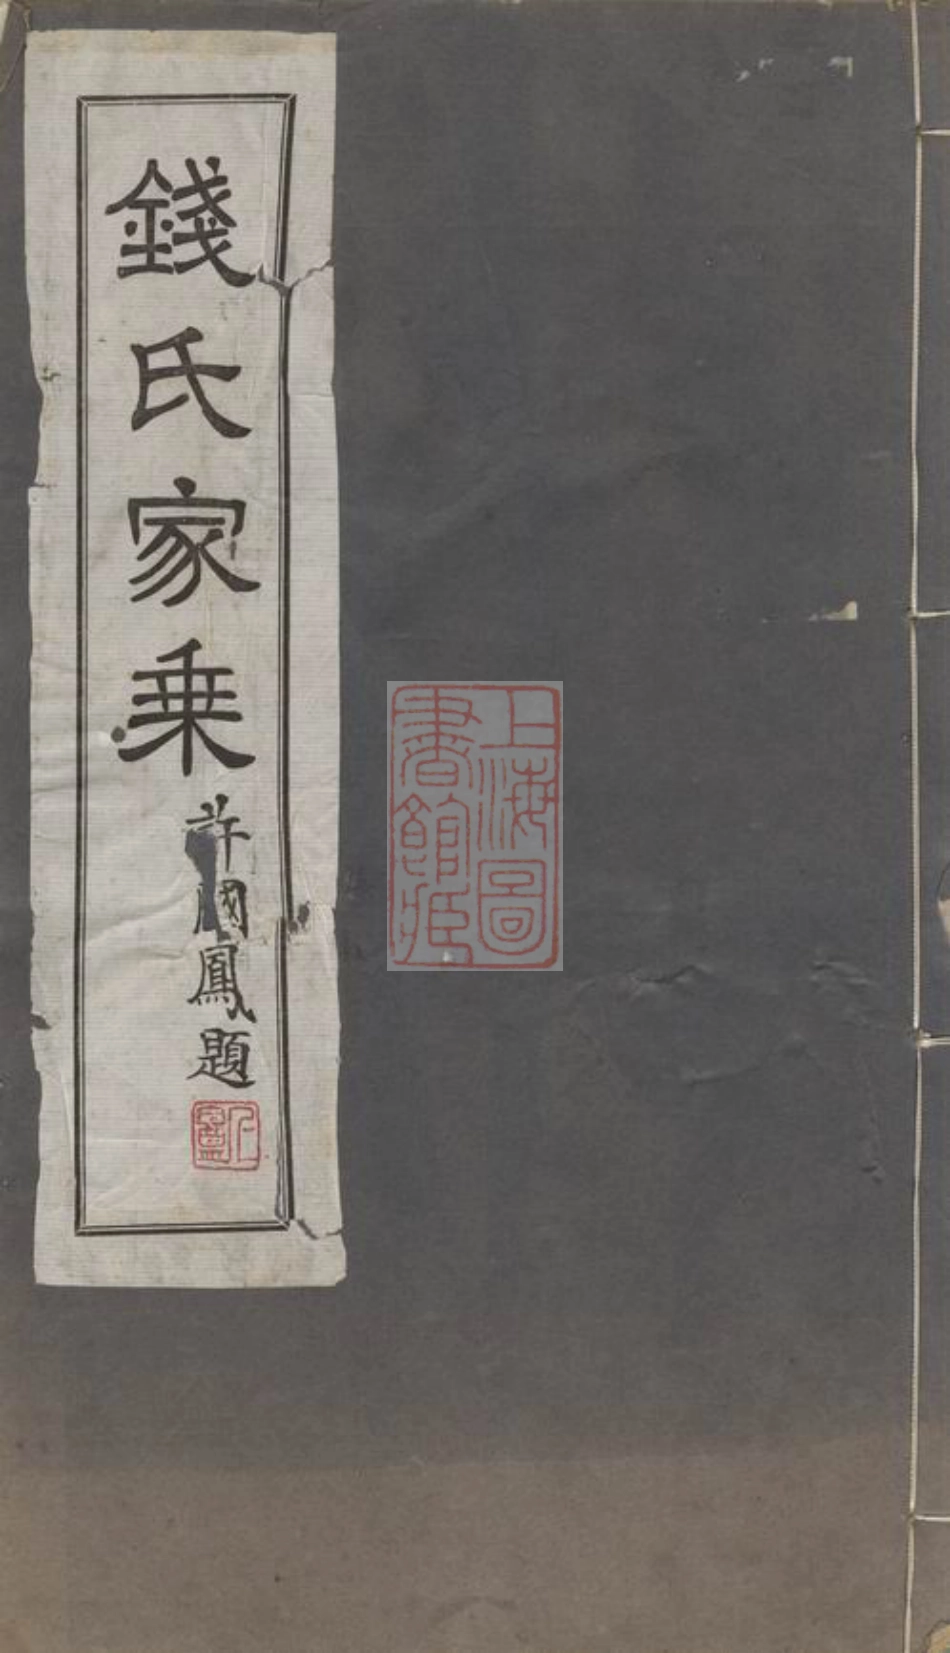 錢氏家乗
許國鳳題
上海圖
書館藏